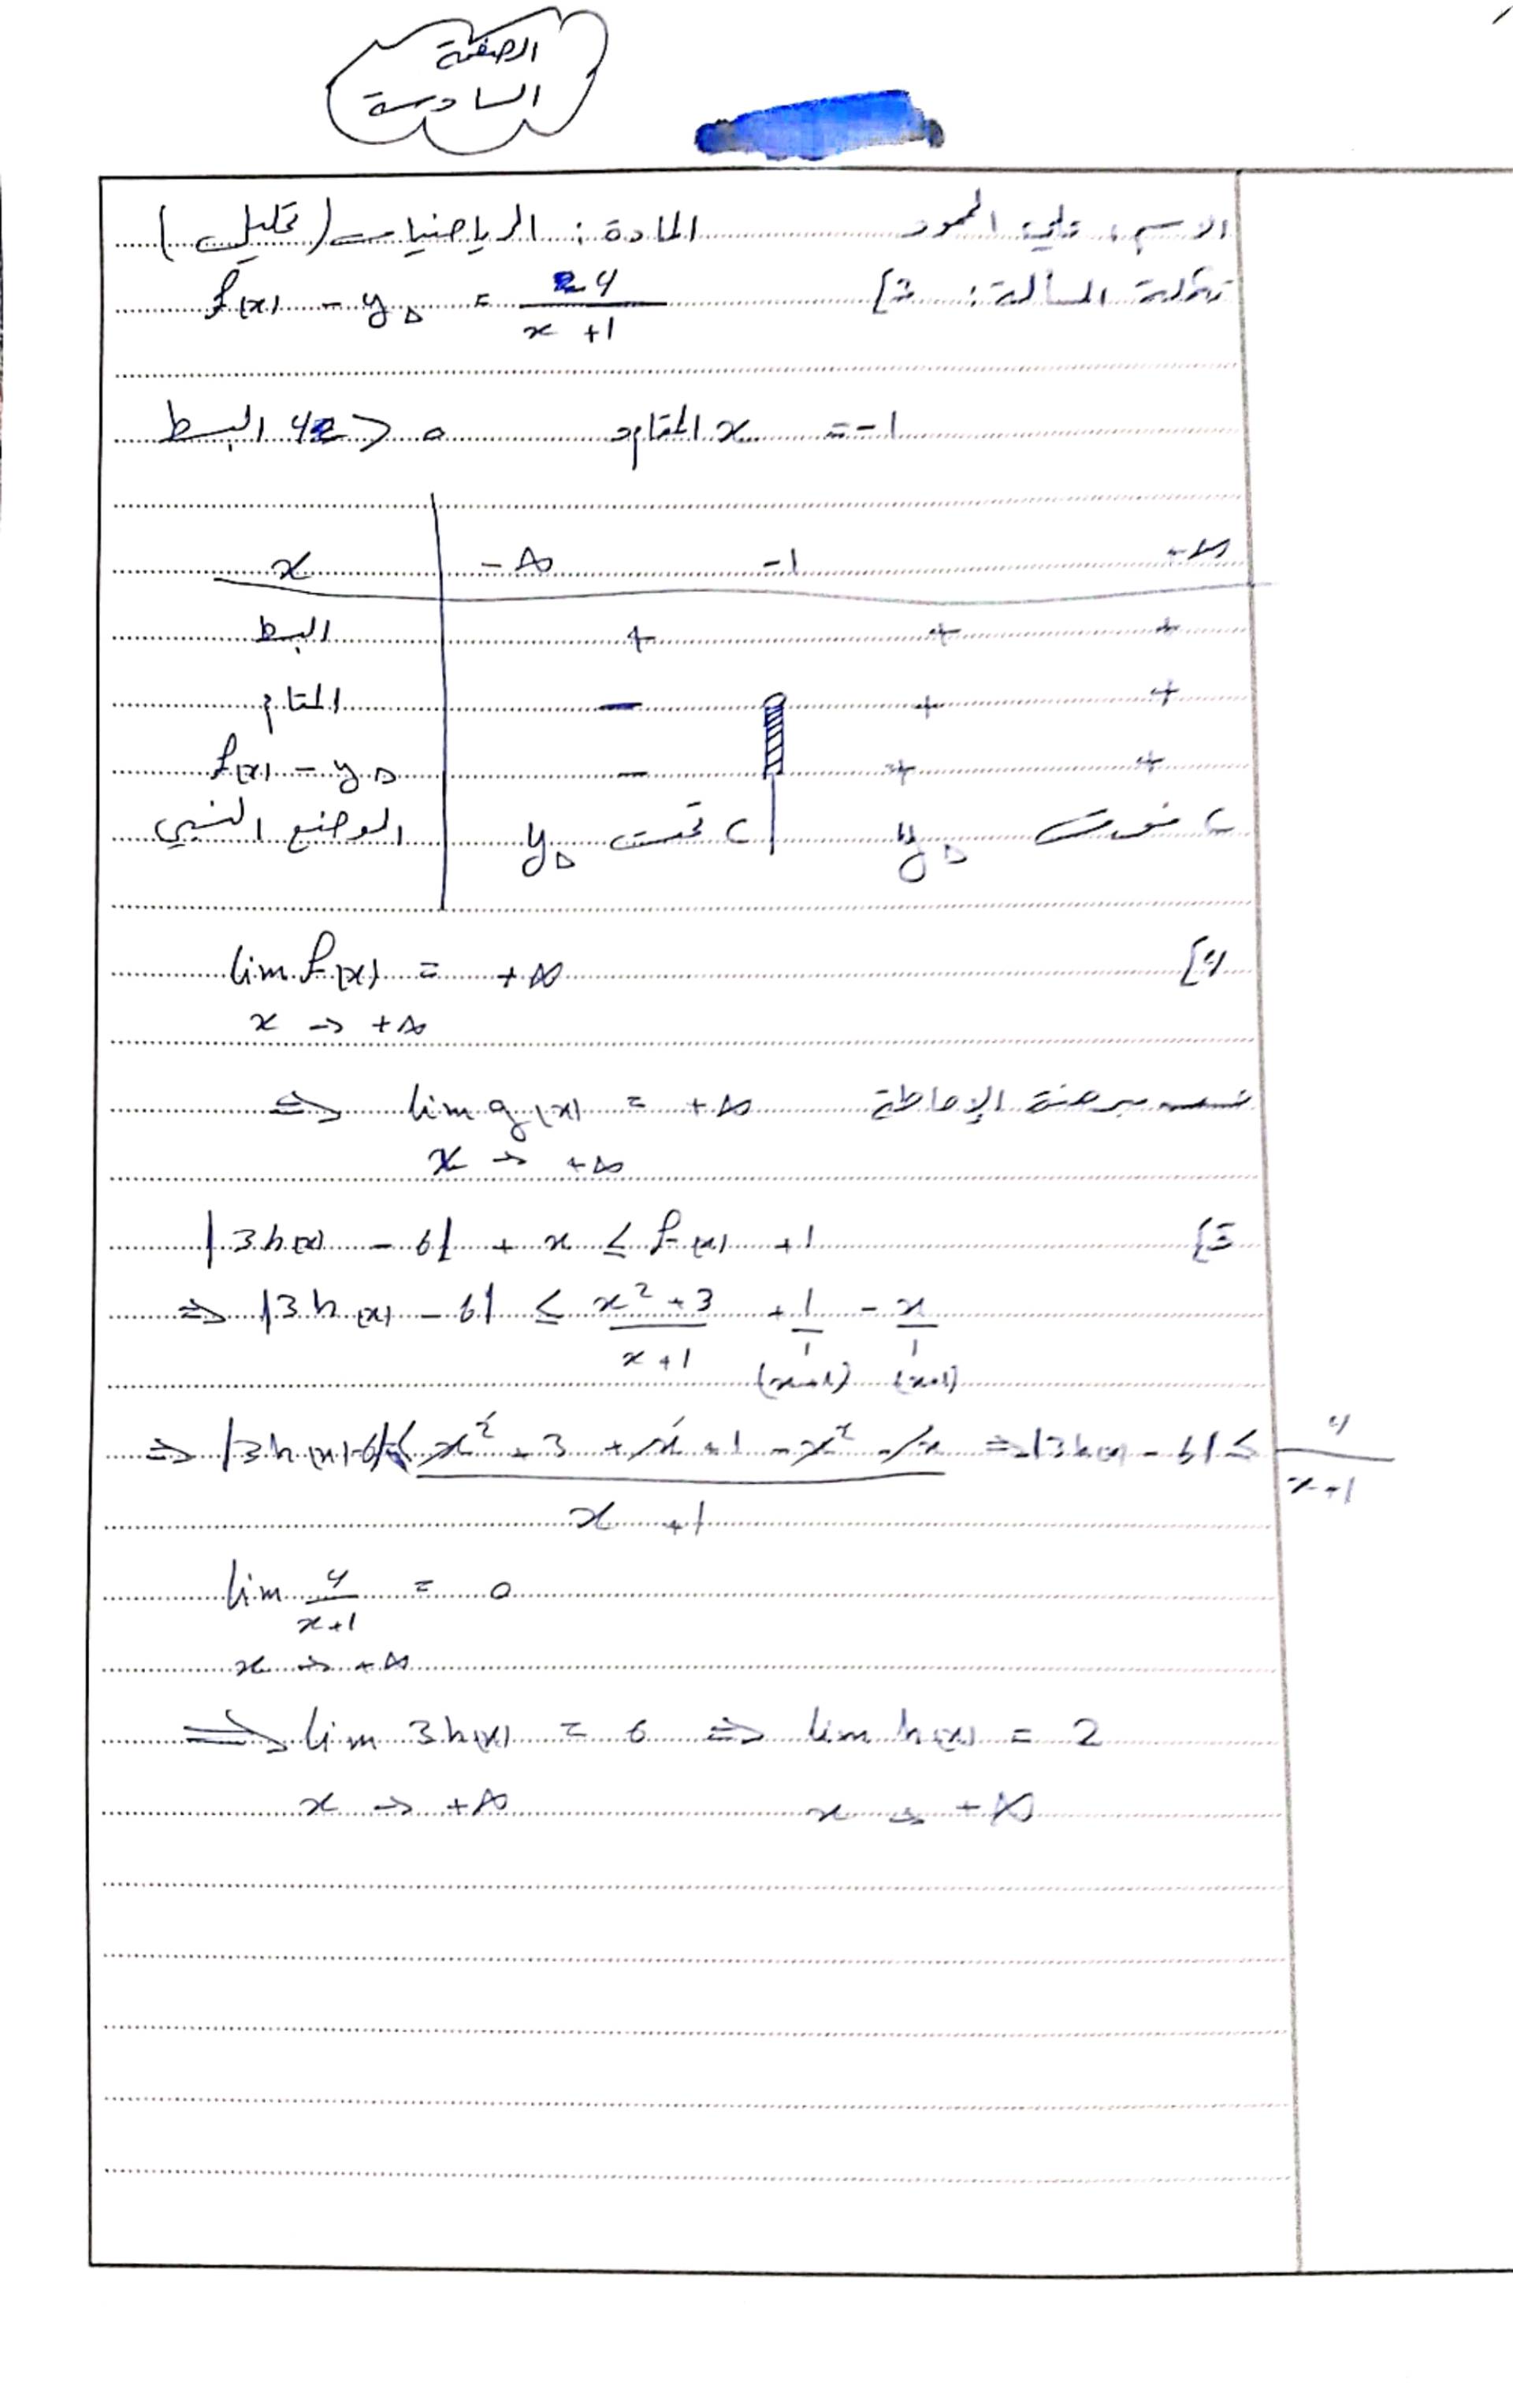 الصفحة
السادسة
الاسم: المادة: الرياضيات (تحليل)
تكملة المسألة: 3] f(x) - y_Δ = 4 / x + 1
x = -1 المقام 4 > 0 البسط
x | -∞ -1 +∞
البسط | + + +
المقام | - + +
f(x) - y_Δ | - + +
الوضع النسبي | C تحت y_Δ C فوق y_Δ
4] lim f(x) = +∞
x → +∞
حسب مبرهنة الإحاطة ⇒ lim g(x) = +∞
x → +∞
5] |3h(x) - 6| + x ≤ f(x) + 1
⇒ |3h(x) - 6| ≤ x² + 3 / x + 1 + 1/1 - x/1
(x+1) (x+1)
⇒ |3h(x) - 6| ≤ x² + 3 + x + 1 - x² - x / x + 1 ⇒ |3h(x) - 6| ≤ 4 / x+1
lim 4 / x+1 = 0
x → +∞
⇒ lim 3h(x) = 6 ⇒ lim h(x) = 2
x → +∞ x → +∞